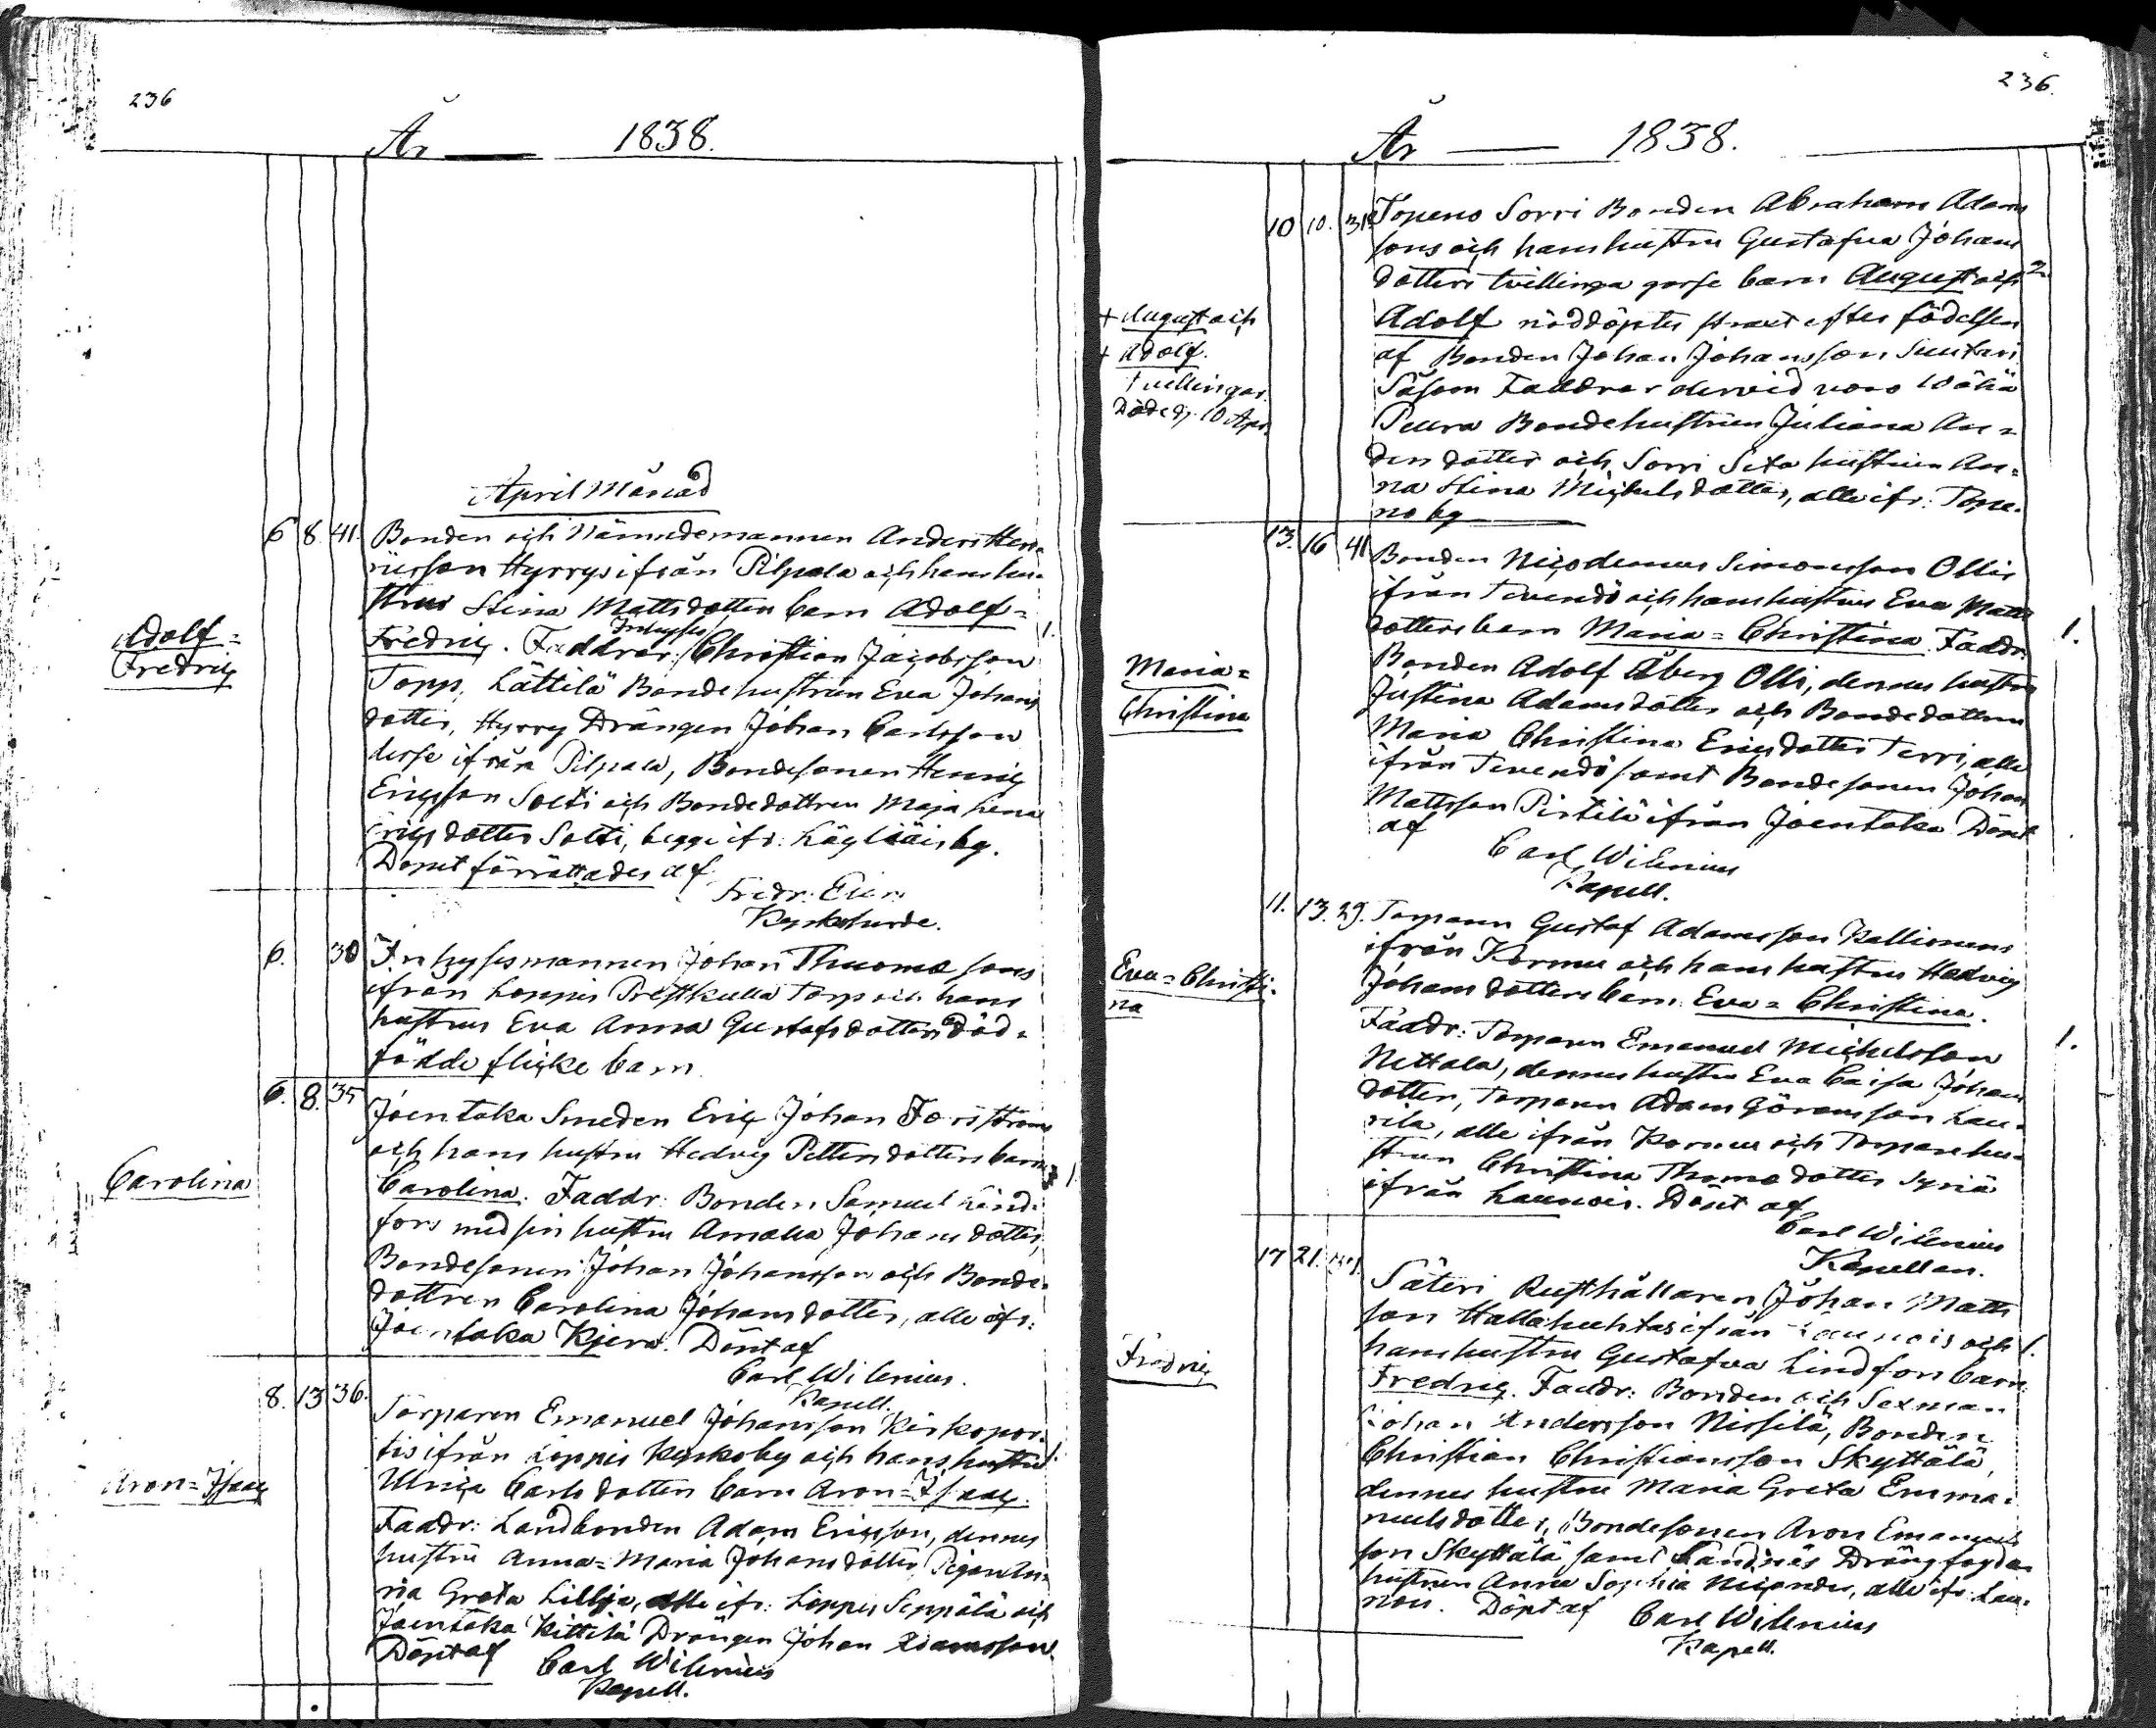 236
År 1838.
April Månad
6 8. 41. Bonden och Nämndemannen Anders Hen=
ricsson Hyrrys ifrån Pilpala och hans hu=
strus Stina Mattsdotters barn Adolf=
Adolf=
Fredric
Inhyses
Fredric. Faddrar: Christian Jacobsson 1.
Topp, Lättilä Bondehustrun Eva Johans
dotter, Hyrry Drängen Johan Carlsson
desse ifrån Pilpala, Bondesonen Henric
Ericsson Solti och Bondedottren Maja Lena
Ericsdotter Solti, begge ifr: Läyliäis by.
Dopet förrättades af
Fredr:
Kyrkoherde.
6. 30 Inhysesmannen Johan Thomæ sons
ifrån Loppis Prestkulla Torp och hans
hustrus Eva Anna Gustafsdotters död=
födde flicke barn
6. 8. 35 Joentaka Smeden Eric Johan Forsströms
och hans hustru Hedvig Pettersdotters barn 1.
Carolina
Carolina. Faddr: Bonden Samuel Lind=
fors med sin hustru Amalia Johansdotter,
Bondesonen Johan Johansson och Bonde=
dottren Carolina Johansdotter, alle ifr:
Joentaka Döpt af
Carl Wilenius.
Kapell.
8. 13 36. Torparen Emanuel Johansson Kirkopor=
tis ifrån Loppis Kyrkoby och hans hustru 1.
Aron=Isaac
Ulrica Carlsdotters barn Aron=Isaac.
Faddr: Landbonden Adam Ericsson, dennes
hustru Anna=Maria Johansdotter, Pigan Ma=
ria Greta Lillja, alle ifr: Loppis Seppälä och
Joentaka Kittilä Drängen Johan Adamsson
Döpt af Carl Wilenius
Kapell.
236.
År 1838.
10 10. 31. Topeno Sorri Bonden Abraham Adams
sons och hans hustru Gustafva Johans
dotters tvillinga gosse barn August och 2.
+ August och
+ Adolf.
Tvillingar.
Döde d: 10 Apr.
Adolf nöddöptes straxt efter födelsen
af Bonden Johan Johansson Suutari
Såsom Faddrar dervid voro Wähä
Puura Bondehustrun Juliana An=
ders dotter och Sorri hustrun An=
na Stina Michelsdotter, alle ifr: Tope=
no by
13. 16 41 Bonden Nicodemus Simonsson Ollis
ifrån Tevendö och hans hustrus Eva Matts
dotters barn Maria=Christina. Faddr: 1.
Maria=
Christina
Bonden Adolf Åberg Olli, dennes hustru
Justina Adamsdotter och Bondedottren
Maria Christina Ericsdotter Terri, alle
ifrån Tevendö samt Bondesonen Johan
Mattsson Pirtilä ifrån Joentaka Döpt
af
Carl Wilenius
Kapell.
11. 13. 29. Torparen Gustaf Adamsson Kallioinens
ifrån Kormu och hans hustrus Hedvig
Eva=Christi=
na
Johansdotters barn Eva=Christina.
Faddr: Torparen Emanuel Michelsson 1.
Nettala, dennes hustru Eva Caisa Johans
dotter, Torparen Adam Göransson Lau=
rila, alle ifrån Kormu och Torparehu=
strun Christina Thomædotter Syriä
ifrån Launois. Döpt af
Carl Wilenius
Kapellan.
17 21. Säteri Rusthållaren Johan Matts
son Hallakuhtas ifrån Launois och 1.
hans hustru Gustafva Lindfors barn
Fredric
Fredric. Faddr: Bonden och Sexman
Johan Andersson Nissilä, Bonden
Christian Christiansson Skyttälä,
dennes hustru Maria Greta Emma=
nuelsdotter, Bondesonen Aron Emanuels
son Skyttälä samt Sandnäs Drängfogde
hustrun Anna Sophia alle ifr: Lau=
nois. Döpt af Carl Wilenius
Kapell.